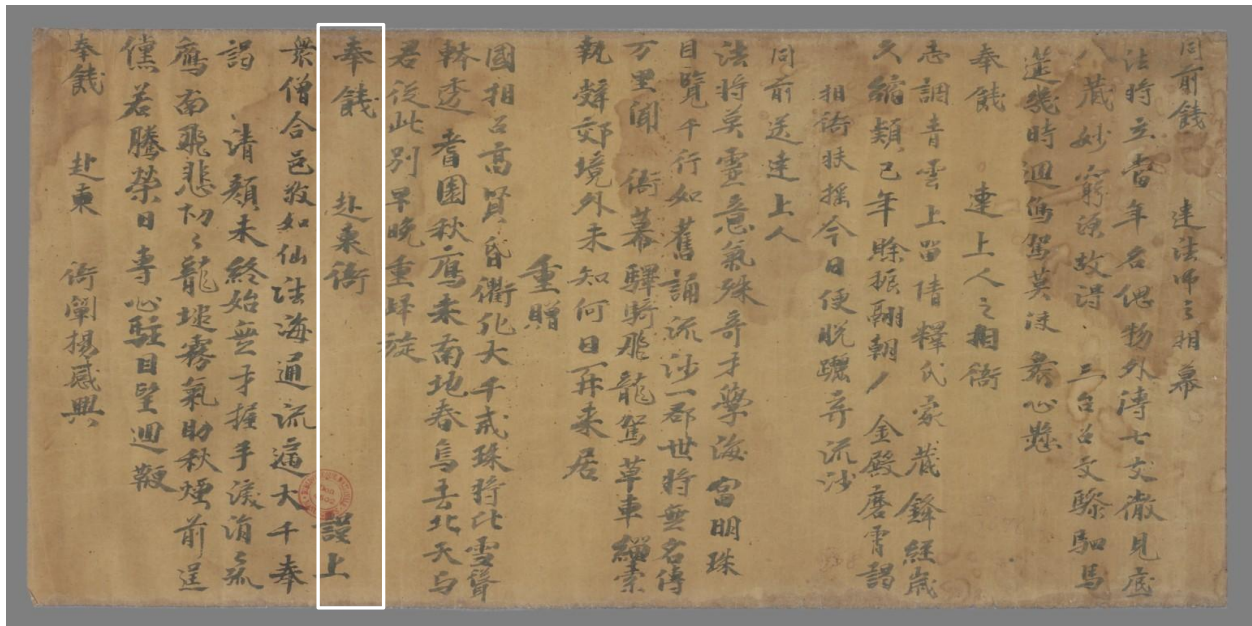 同前餞　達法師之相幕
法將立當年名俱物外傳七支徹見底
八藏妙窮源故得　三台召文驂駟馬
筵幾時迴偽駕莫使　衆心懸
奉餞　達上人之相衙
志調青雲上留情釋氏家藏鋒經歲
久縮類已年賒振翮朝　金殿磨霄謁
相衙扶搖今日便脫躧弃流沙
同前送達上人
法將莫靈意氣殊奇才學海富明珠
目覽千行如舊誦流沙一郡世將無名傳
万里聞　衙幕驛騎飛龍駕草車緇素
執辭郊境外未知何日再來居
重贈
國相召高賢昏衢化大千戒珠將比雪聲
幹透　耆園秋鴈來南地春鳥去北天与
君從此別早晚重歸旋
奉餞　赴東衙　謹上
衆僧合邑敬如仙法海通流遍大千奉
謁　清顏未終始無才握手淚涓々孤
鴈南飛悲切々龍堆霧氣助秋煙前逞
儻若騰榮日專心駐目望迴鞭
奉餞　赴東　衙闡揚感興